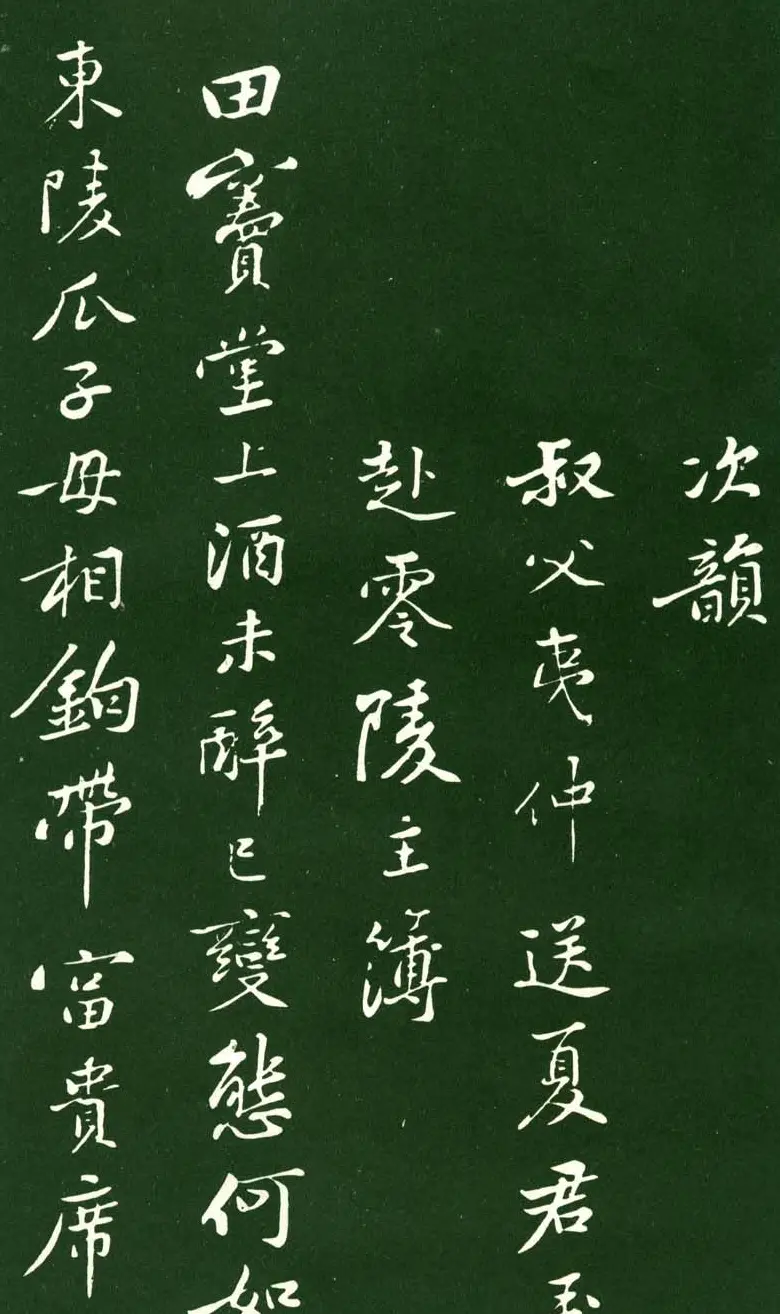 次韻
叔父夷仲送夏君玉
赴零陵主簿
田竇堂上酒未醉已變態何如
東陵瓜子母相鉤帶富貴席